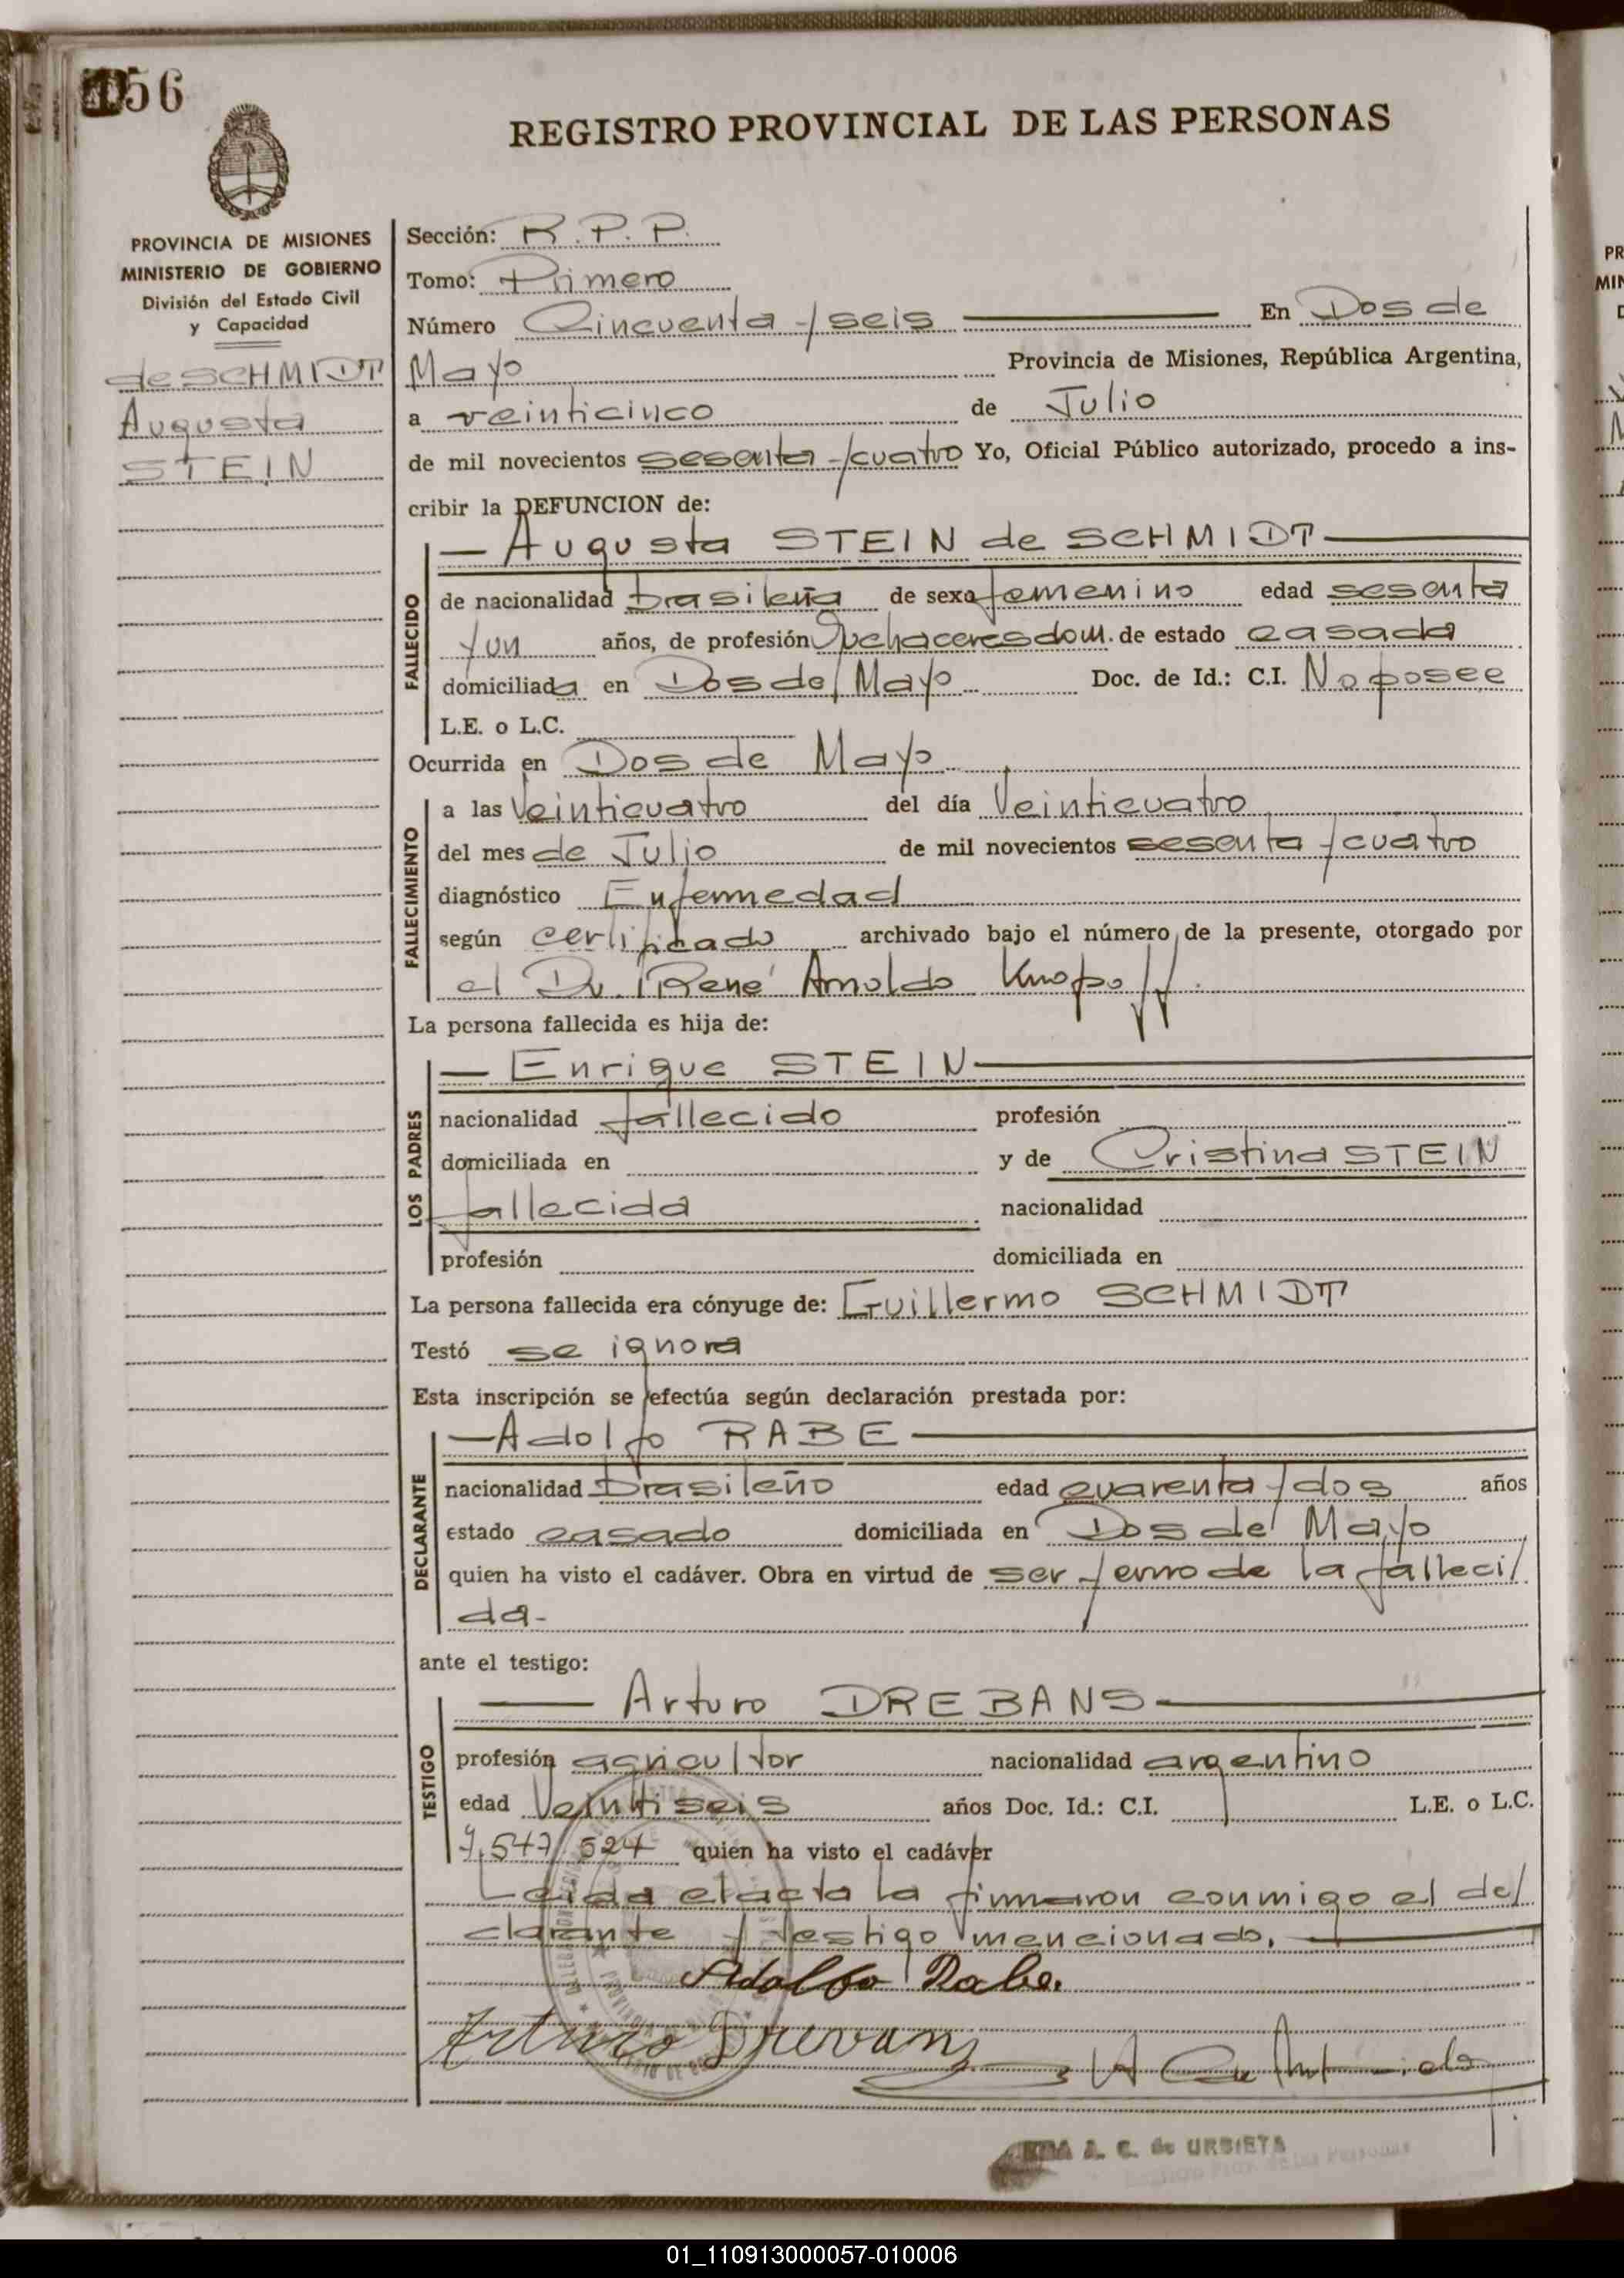 56
REGISTRO PROVINCIAL DE LAS PERSONAS
PROVINCIA DE MISIONES
MINISTERIO DE GOBIERNO
División del Estado Civil
y Capacidad
de SCHMIDT
Augusta
STEIN
Sección: R.P.P.
Tomo: Primero
Número Cincuenta y seis En Dos de
Mayo Provincia de Misiones, República Argentina,
a veinticinco de Julio
de mil novecientos sesenta y cuatro Yo, Oficial Público autorizado, procedo a ins-
cribir la DEFUNCION de:
Augusta STEIN de SCHMIDT
FALLECIDO
de nacionalidad brasileña de sexo femenino edad sesenta
y un años, de profesión Quehaceres dom. de estado casada
domiciliada en Dos de Mayo Doc. de Id.: C.I. No posee
L.E. o L.C.
Ocurrida en Dos de Mayo
FALLECIMIENTO
a las Veinticuatro del día Veinticuatro
del mes de Julio de mil novecientos sesenta y cuatro
diagnóstico Enfermedad
según certificado archivado bajo el número de la presente, otorgado por
el Dr. René Arnoldo Knopoff
La persona fallecida es hija de:
Enrique STEIN
LOS PADRES
nacionalidad fallecido profesión
domiciliada en y de Cristina STEIN
fallecida nacionalidad
profesión domiciliada en
La persona fallecida era cónyuge de: Guillermo SCHMIDT
Testó se ignora
Esta inscripción se efectúa según declaración prestada por:
Adolfo RABE
DECLARANTE
nacionalidad brasileño edad cuarenta y dos años
estado casado domiciliada en Dos de Mayo
quien ha visto el cadáver. Obra en virtud de ser yerno de la falleci/
da-
ante el testigo:
Arturo DREBANS
TESTIGO
profesión agricultor nacionalidad argentino
edad Veintiseis años Doc. Id.: C.I. L.E. o L.C.
7.547.524 quien ha visto el cadáver
Leida el acta la firmaron conmigo el de/
clarante y testigo mencionado.
Adolfo Rabe.
Arturo Drevans
A. C. de URBIETA
01_110913000057-010006